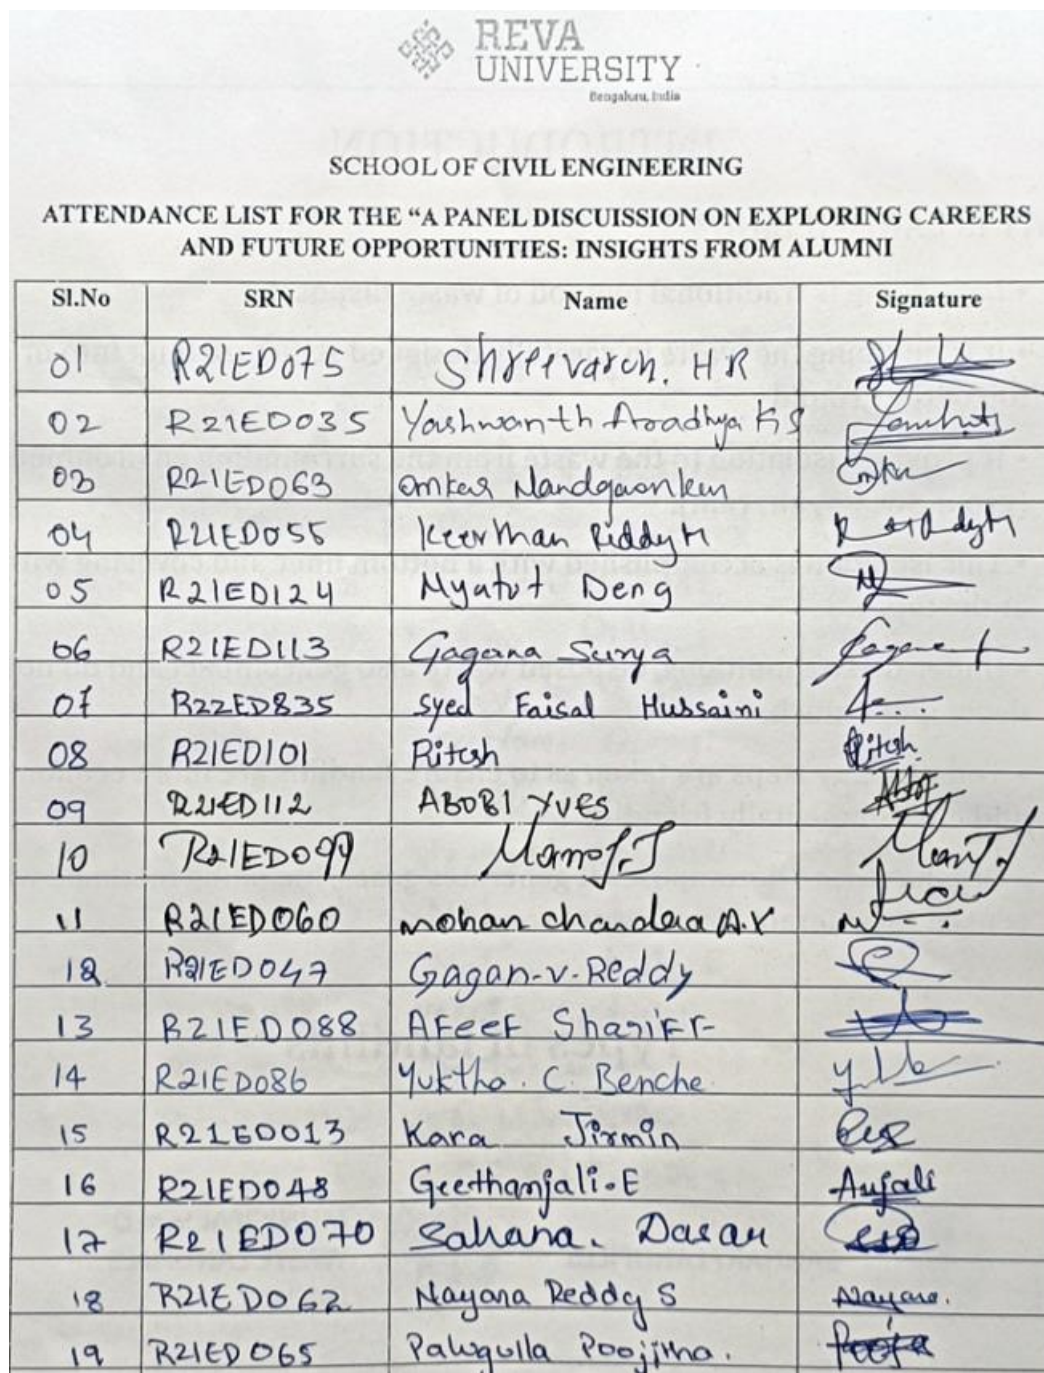 REVA
UNIVERSITY
Bengaluru, India
SCHOOL OF CIVIL ENGINEERING
ATTENDANCE LIST FOR THE “A PANEL DISCUISSION ON EXPLORING CAREERS
AND FUTURE OPPORTUNITIES: INSIGHTS FROM ALUMNI
Sl.No SRN Name Signature
01 R21ED075 Shreevarch. HR
02 R21ED035 Yashwanth Aradhya KS
03 R21ED063 Omkar Nandgaonkar
04 R21ED055 Keerthan Riddy H
05 R21ED124 Myatut Deng
06 R21ED113 Gagana Surya
07 R22ED835 Syed Faisal Hussaini
08 R21ED101 Ritesh Ritesh
09 R21ED112 ABOBI YVES
10 R21ED099 Manoj.J
11 R21ED060 mohan chandraa A.Y
12 R21ED047 Gagan-v-Reddy
13 R21ED088 AFeeF ShariFF
14 R21ED086 Yuktha. C. Benche
15 R21ED013 Kara Jirmin
16 R21ED048 Geethanjali.E Anjali
17 R21ED070 Sahana. Dasar
18 R21ED062 Nayana Reddy S Nayana.
19 R21ED065 Palugulla Poojitha. Pooja